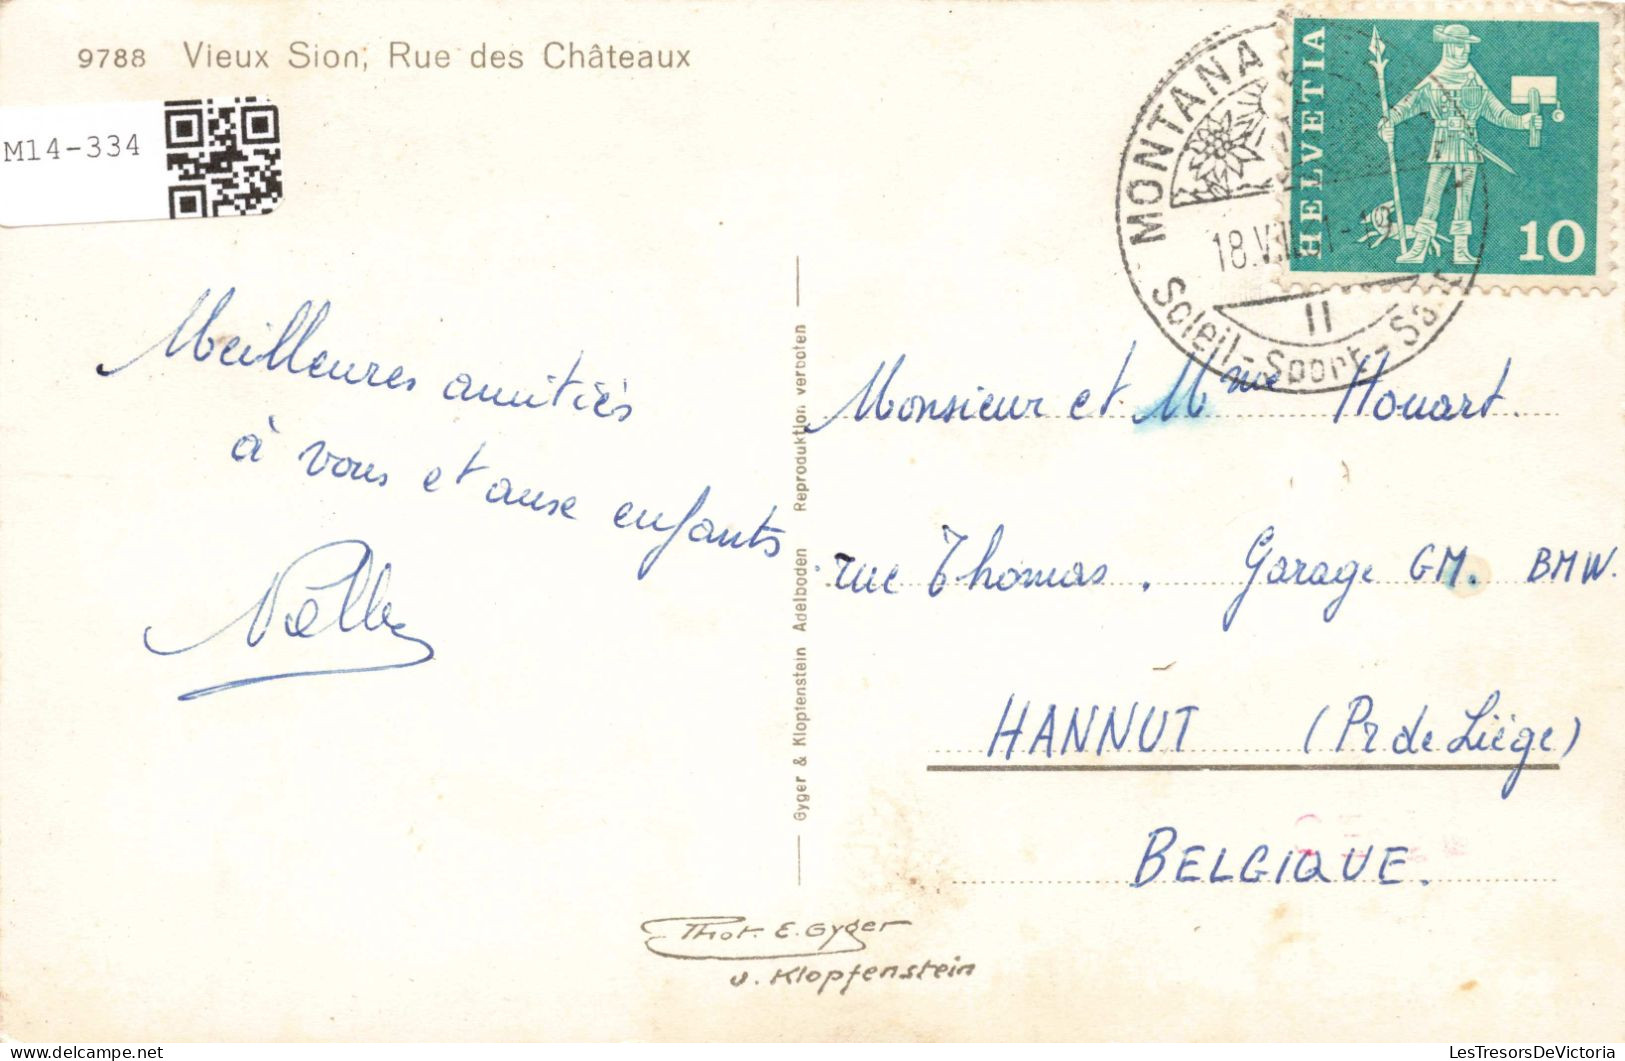 9788 Vieux Sion; Rue des Châteaux
M14-334
MONTANA
HELVETIA
10
18.VIII.
II
Soleil-Sport-
Meilleures amitiés
à vous et aux enfants
Nelly
Gyger & Klopfenstein Adelboden Reproduktion verboten
Monsieur et Mme Houart.
rue Thomas. Garage GM. BMW.
HANNUT (Pr de Liège)
BELGIQUE.
Phot. E. Gyger
u. Klopfenstein
LesTresorsDeVictoria.com